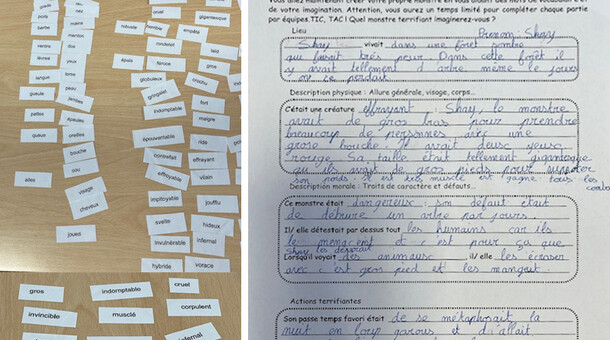 cruel
gigantesque
robuste
terrible
empâté
rondelet
laid
barbe
mains
ventre
verrue
dos
bras
féroce
yeux
large
fin
lèvres
buste
langue
peau
globuleux
moche
gueule
pieds
gringalet
pupilles
indomptable
fort
pattes
épaules
maigre
queue
oreilles
épouvantable
bouche
contrefait
effrayant
cou
effroyable
vilain
ailes
visage
impitoyable
joufflu
cheveux
svelte
hideux
joues
invulnérable
infernal
hybride
vorace
gros
indomptable
cruel
invincible
musclé
corpulent
infernal
Vous allez maintenant créer votre propre monstre en vous aidant des mots de vocabulaire et
de votre imagination. Attention, vous aurez un temps limité pour compléter chaque partie
par équipes. TIC, TAC ! Quel monstre terrifiant imaginerez-vous ?
Lieu
Prénom : Shay
Shay vivait dans une forêt sombre
qui faisait très peur. Dans cette forêt il
y avait tellement d'arbre même le jours
on ce perdait.
Description physique : Allure générale, visage, corps...
C'était une créature effrayant : Shay, le monstre
avait de gros bras pour prendre
beaucoup de personnes avec une
grose bouche. Il avait deux yeux
rouge. Sa taille était tellement gigantesque
qu'ils avait de gros pieds pour supporter
son poids. il est très musclé est gagne tous les
Description morale : Traits de caractère et défauts...
Ce monstre était dangereux : son défaut était
de détruire un arbre par jours.
Il/ elle détestait par dessus tout les humains car ils
le menacent et c'est pour ça que
Shay les détestait
Lorsqu'il voyait des animaux, il/ elle les écraser
avec c'est gros pied et les mangeait.
Actions terrifiantes
Son passe temps favori était de se métaphosait la
nuit en loup garous et d'allait